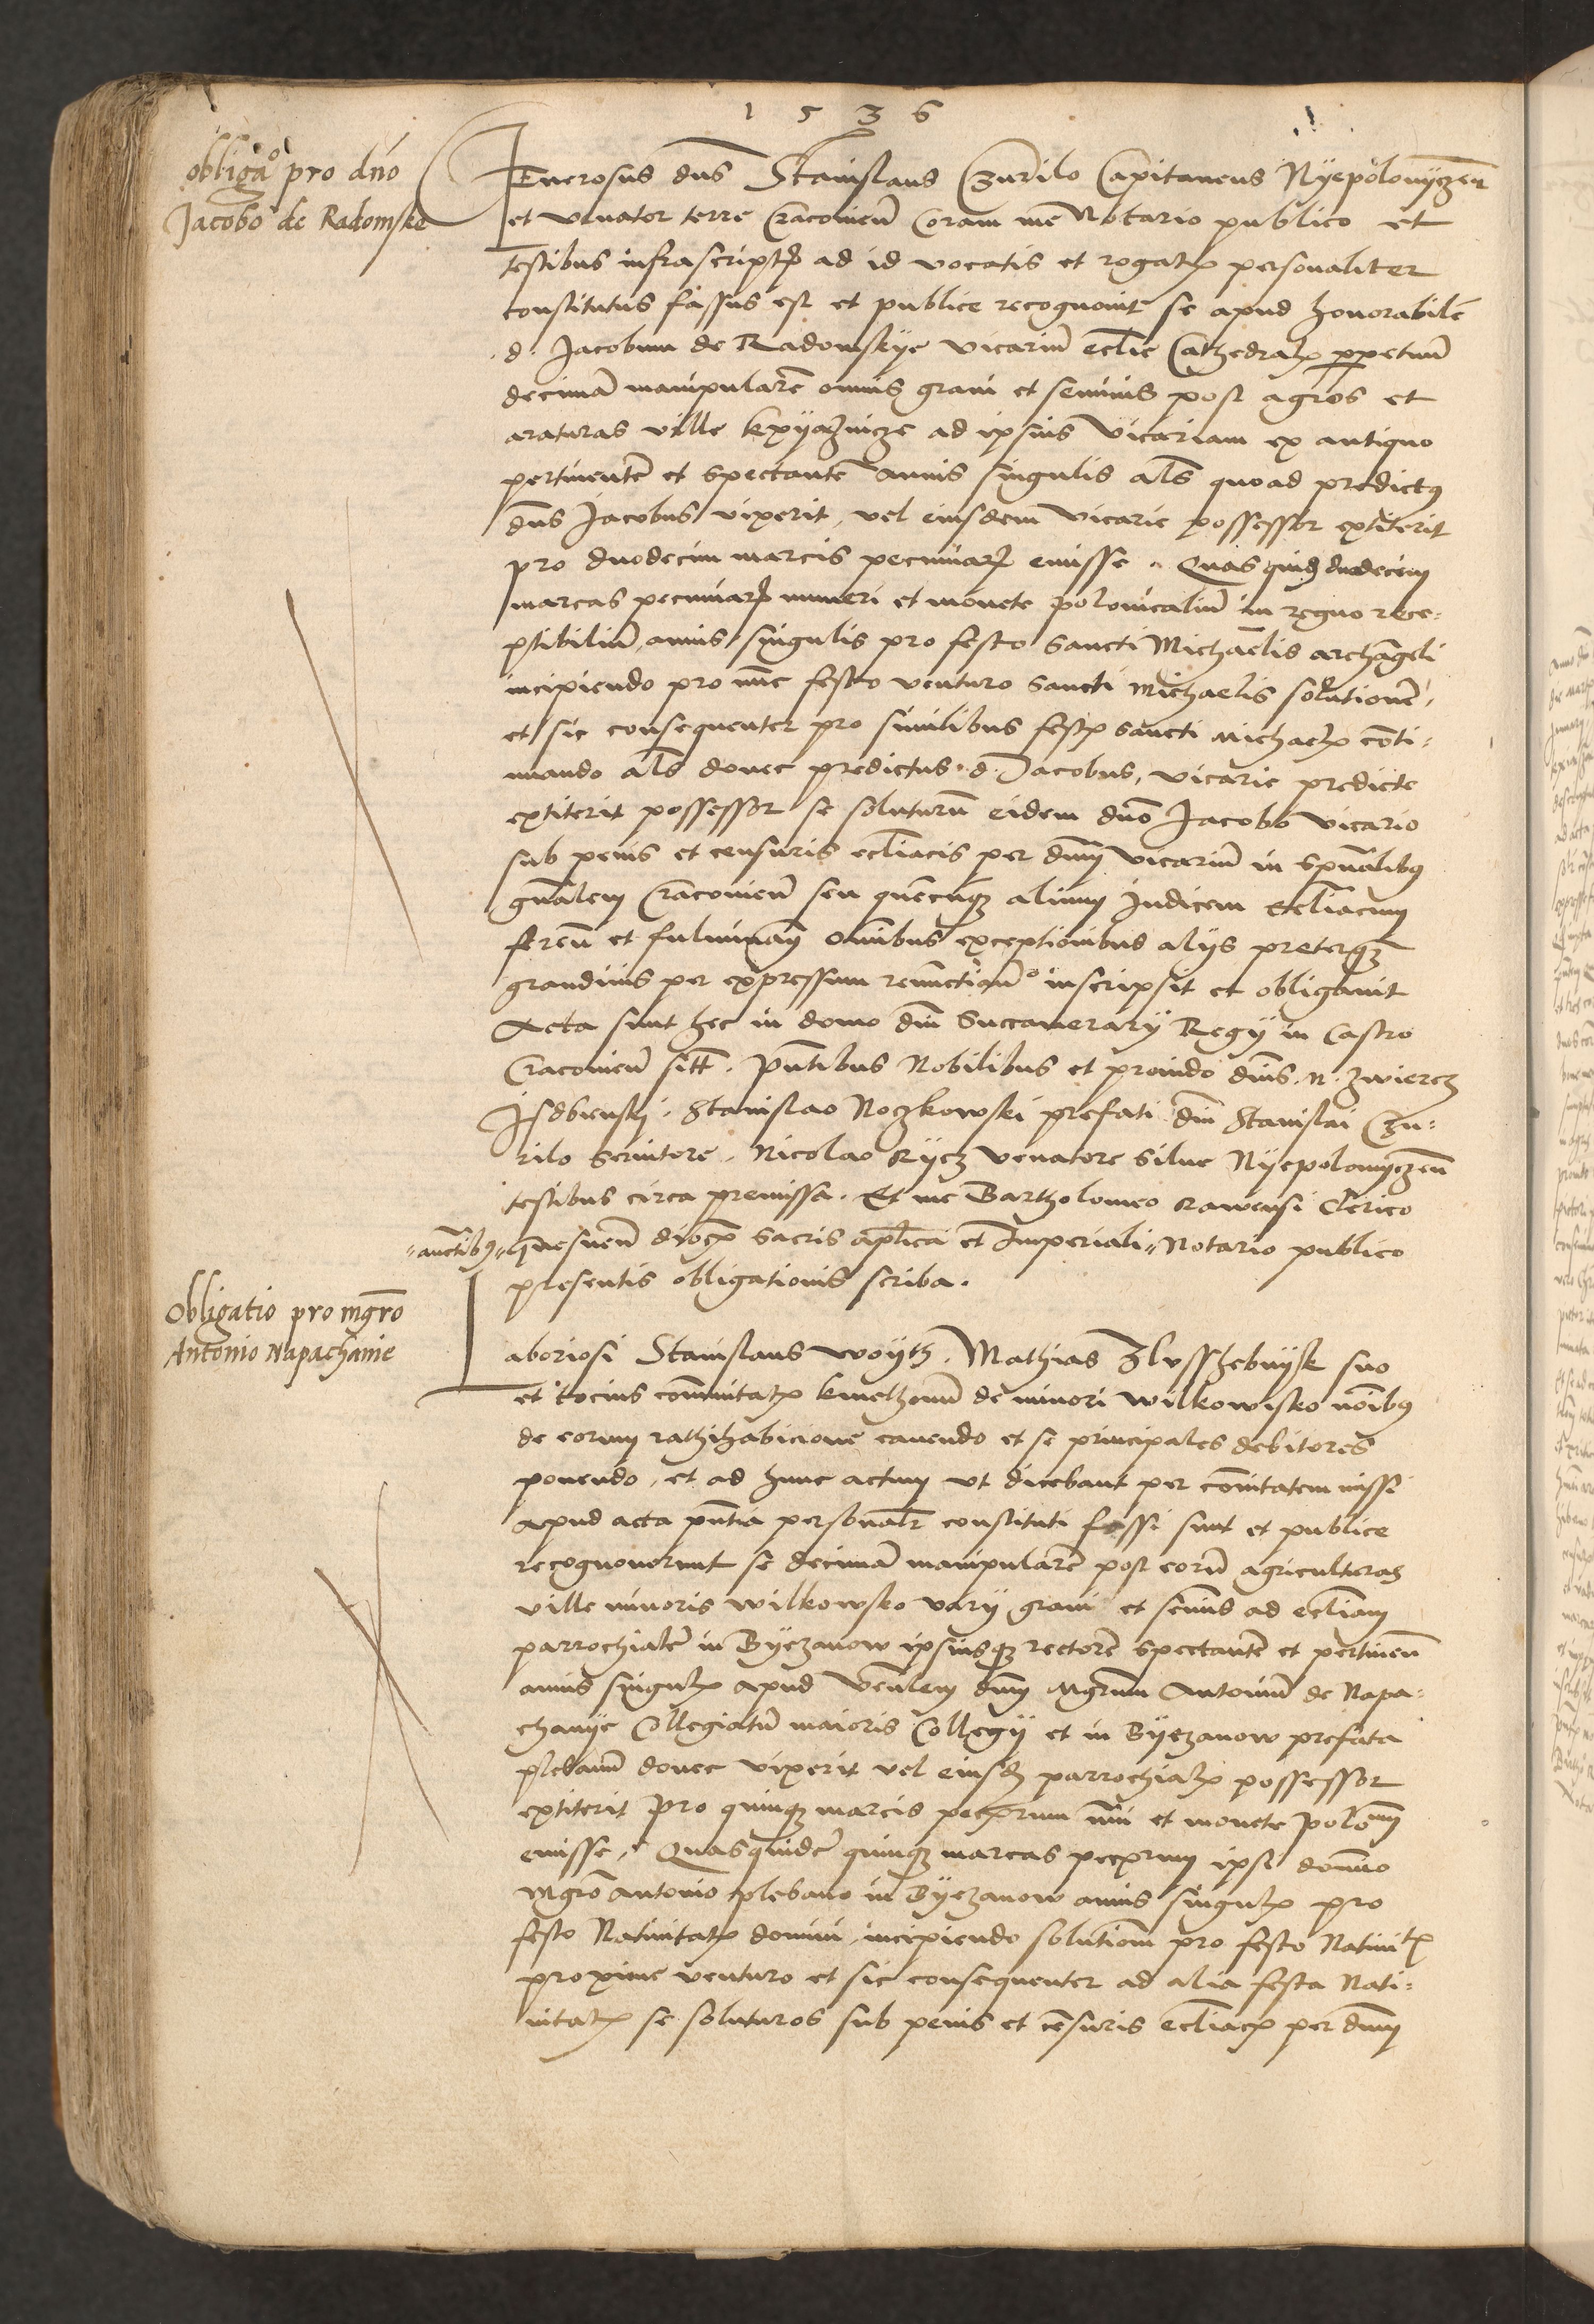 1536
obliga° pro dno
Jacobo de Radomsko
Generosus dns Stanislaus Czurilo Capitaneus Nyepolomyczen
et venator terre Cracovien Coram me Notario publico et
testibus infrascriptis ad id vocatis et rogatis personaliter
constitutus fassus est et publice recognovit se apud honorabile
.d. Jacobum de Radomskye vicarium ecclie Cathedralis perpetuum
decimam manipularem omnis grani et seminis post agros et
araturas ville ad ipsius Vicariam ex antiquo
pertinentem et spectantem annis singulis als quoad predictus
dns Jacobus vixerit, vel eiusdem vicarie possessor extiterit
pro duodecim marcis pecuniarum emisse. Quasquidem duodecim
marcas pecuniarum numeri et monete polonicalium in regno rece-
ptibilium, annis singulis pro festo sancti Michaelis archangeli
incipiendo pro nunc festo venturo sancti Michaelis solutionem,
et sic consequenter pro similibus festis sancti Michaelis conti-
nuando als donec predictus .d. Jacobus, vicarie predicte
extiterit possessor se soluturum eidem dno Jacobo vicario
sub penis et censuris eccliacis per dnum vicarium in spualibus
gnalem Cracovien seu quemcumque alium Judicem eccliacum
feren et fulminan omnibus exceptionibus alys preterquam
grandinis per expressum inscripsit et obligavit
Acta sunt hec in domo dni Succamerary Regy in Castro
Cracovien sitt. pntibus Nobilibus et dnis .N. Zwierz
Stanislao Noczkowski prefati dni Stanislai Czu-
rilo servitore, Nicolao Rycz venatore silve Nyepolomyczen
testibus circa premissa. Et me Bartholomeo Rawensi Clerico
"auctibus" Gnesnen dioc sacris aplica et Imperiali "Notario publico
presentis obligationis scriba.
Obligatio pro mgro
Antonio Napachanie
Laboriosi Stanislaus woyth, Mathias suo
et tocius communitatis kmethonum de minori wilkowisko noibus
de eorum rathihabicione cavendo et se principales debitores
ponendo, et ad hunc actum ut dicebant per comitatem missi
apud acta pntia personalr constituti fassi sunt et publice
recognoverunt se decimam manipularem post eorum agriculturas
ville minoris wilkowsko vary grani et seminis ad eccliam
parrochialem in Byezanow ipsiusque rectorem spectantem et pertinen
annis singulis apud Venlem dnum Mgrum Antonium de Napa-
chanye Collegiatum maioris Collegy et in Byezanow prefata
plebanum donec vixerit vel eiusdem parrochialis possessor
extiterit pro quinque marcis peccuniarum nri et monete polo
emisse. Quasquidem quinque marcas ipsi domino
Mgro Antonio plebano in Byezanow annis singulis pro
festo Nativitatis domini, incipiendo solutionem pro festo Nativitatis
proxime venturo et sic consequenter ad alia festa Nati-
vitatis se soluturos sub penis et censuris eccliacis per dnum